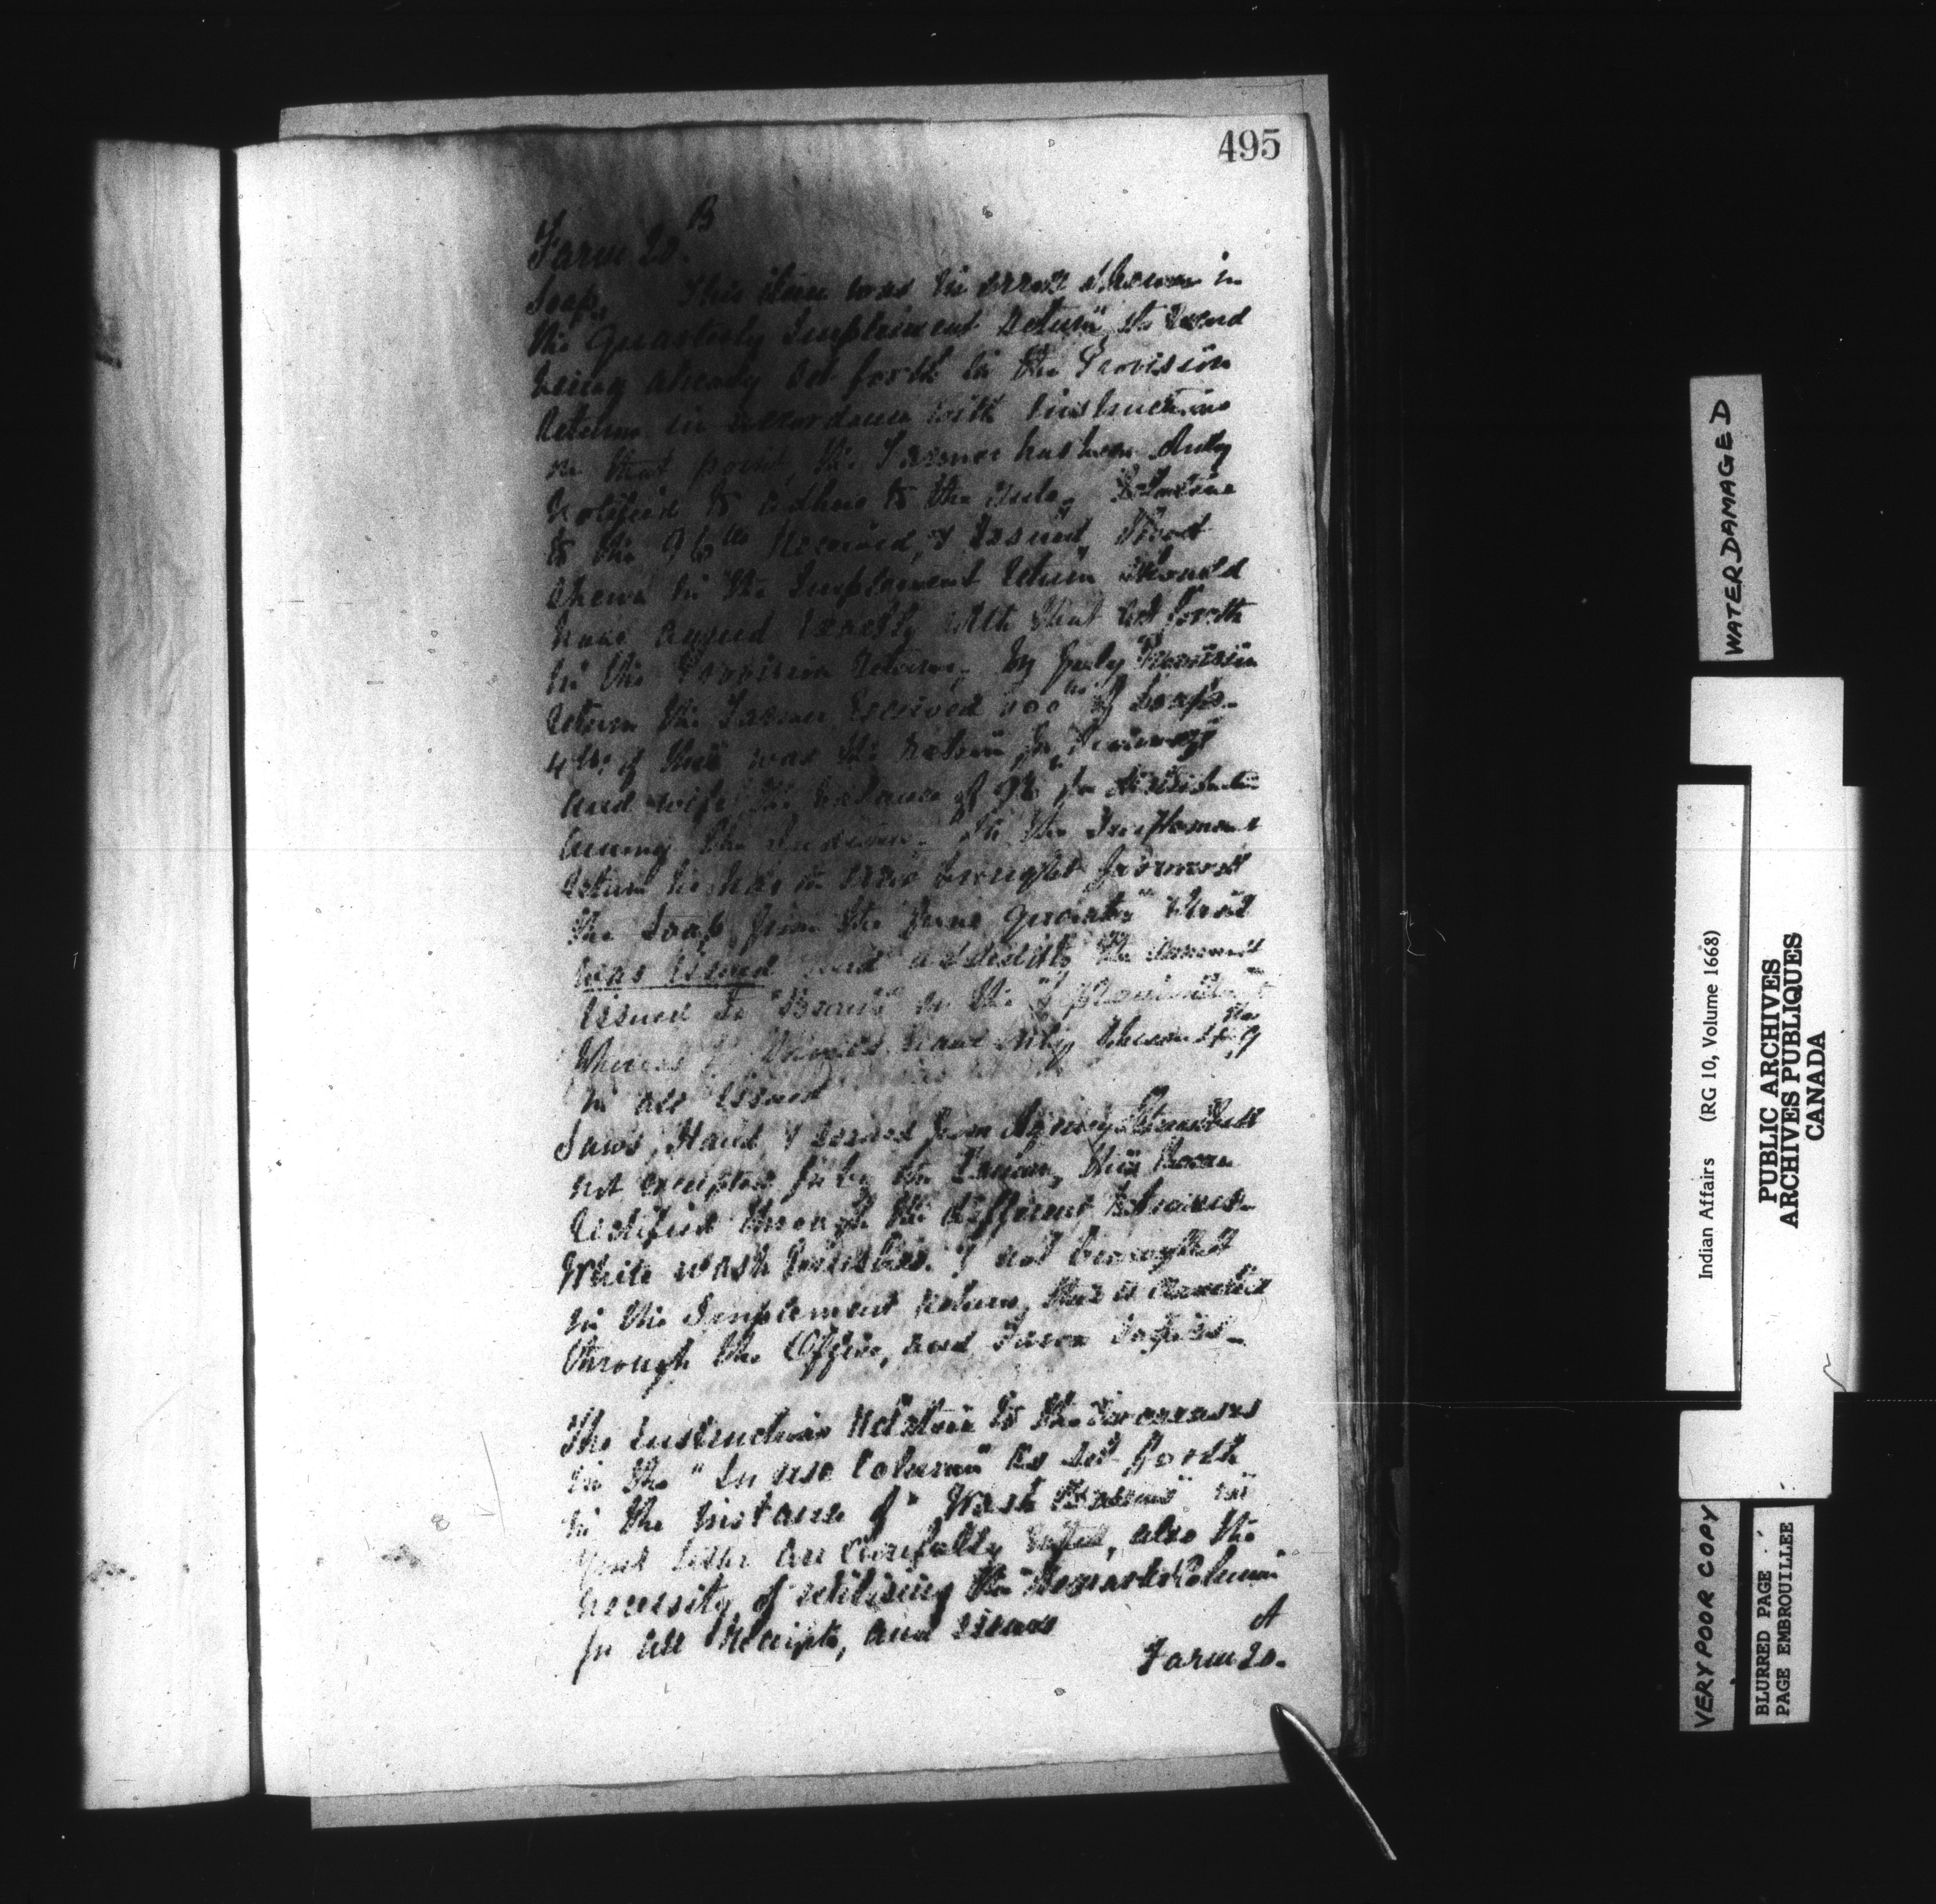 495
Farm 20 B
Soap. This item was in error shown in
the Quarterly Implement Return, its record
being already set forth in the Provision
Return in accordance with instructions
on that point, the Farmer has been duly
notified to adhere to the rule. Relative
to the 96 lbs Received, & Issued,
shewn in the Implement Return should
have agreed exactly with that set forth
in the Provision Return. By July Provision
Return the Farmer received 100 lbs of Soap.
4 lbs of this was the ration for
and wife the balance of 96 lbs for distribution
among the Indians. In the Implement
Return he has in error brought forward
the Soap from the June quarter
was issued and added to the amount
issued to in the
should have only shewn the 96
in all issued
Saws, Hand, & issued from Agency Storehouse
not receipted for by the Farmer, this been
rectified through the different Returns.
White wash brushes. 1 not brought
in the Implement Return, this is corrected
through the Office, and Farm copies.
The instructions Relative to the increases
in the "In use Column" as set forth
in the instance of "Wash Basins" in
your letter are carefully noted, also the
necessity of utilising the "Remarks Column"
for all Receipts, and issues
Farm 20. A
WATER DAMAGED
Indian Affairs (RG 10, Volume 1668)
PUBLIC ARCHIVES
ARCHIVES PUBLIQUES
CANADA
VERY POOR COPY
BLURRED PAGE
PAGE EMBROUILLEE